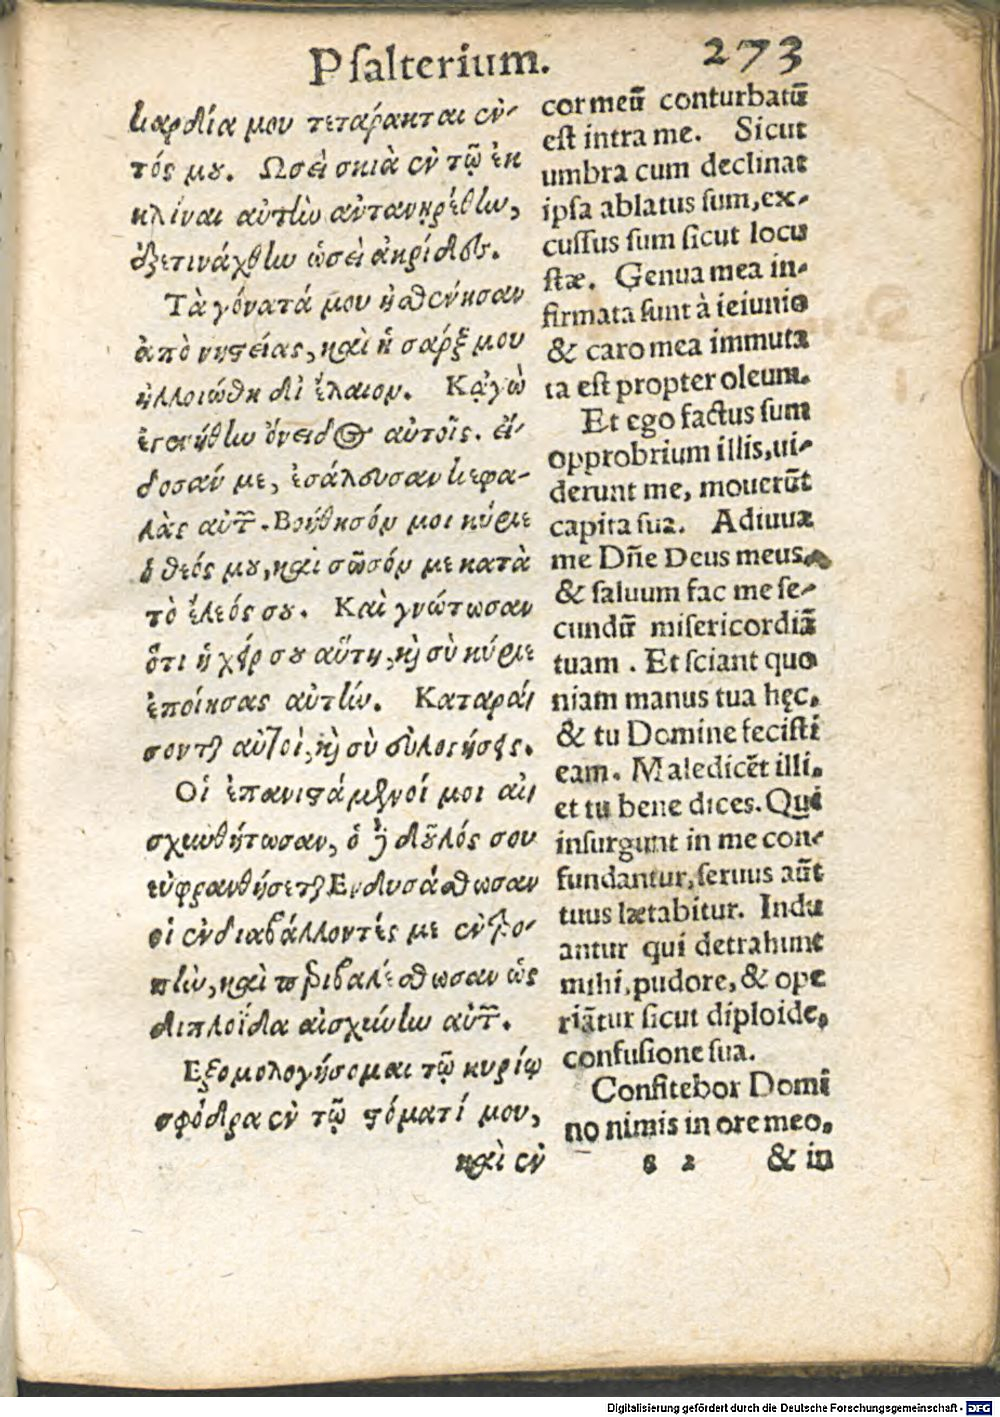 Psalterium. 273
καρδία μου τετάρακται ἐν-
τός μου. Ωσεὶ σκιὰ ἐν τῷ ἐκ
κλίναι αὐτὴν ἀντανῃρέθην,
ἐξετινάχθην ὡσεὶ ἀκρίδες.
Τὰ γόνατά μου ἠσθένησαν
ἀπὸ νηστείας, καὶ ἡ σάρξ μου
ἠλλοιώθη δι' ἔλαιον. Κᾀγὼ
ἐγενήθην ὄνειδος αὐτοῖς. εἴ-
δοσάν με, ἐσάλευσαν κεφα-
λὰς αὐτῶν. Βοήθησόν μοι κύριε
ὁ θεός μου, καὶ σῶσόν με κατὰ
τὸ ἔλεός σου. Καὶ γνώτωσαν
ὅτι ἡ χείρ σου αὕτη, καὶ σὺ κύριε
ἐποίησας αὐτήν. Καταρά-
σονται αὐτοὶ, καὶ σὺ εὐλογήσεις.
Οἱ ἐπανιστάμενοί μοι αἰ-
σχυνθήτωσαν, ὁ δὲ δοῦλός σου
εὐφρανθήσεται Ενδυσάσθωσαν
οἱ ἐνδιαβάλλοντές με ἐντρο-
πὴν, καὶ περιβαλέσθωσαν ὡς
διπλοΐδα αἰσχύνην αὐτῶν.
Εξομολογήσομαι τῷ κυρίῳ
σφόδρα ἐν τῷ στόματί μου,
καὶ ἐν
cor meū conturbatū
est intra me. Sicut
umbra cum declinat
ipsa ablatus sum, ex-
cussus sum sicut locu
stæ. Genua mea in-
firmata sunt à ieiunio
& caro mea immuta
ta est propter oleum.
Et ego factus sum
opprobrium illis, ui-
derunt me, mouerūt
capita sua. Adiuua
me Dñe Deus meus,
& saluum fac me se-
cundū misericordiā
tuam. Et sciant quo
niam manus tua hęc,
& tu Domine fecisti
eam. Maledicēt illi,
et tu bene dices. Qui
insurgunt in me con-
fundantur, seruus aūt
tuus lætabitur. Indu
antur qui detrahunt
mihi, pudore, & ope
riātur sicut diploide,
confusione sua.
Confitebor Domi
no nimis in ore meo,
s 2 & in
Digitalisierung gefördert durch die Deutsche Forschungsgemeinschaft - DFG